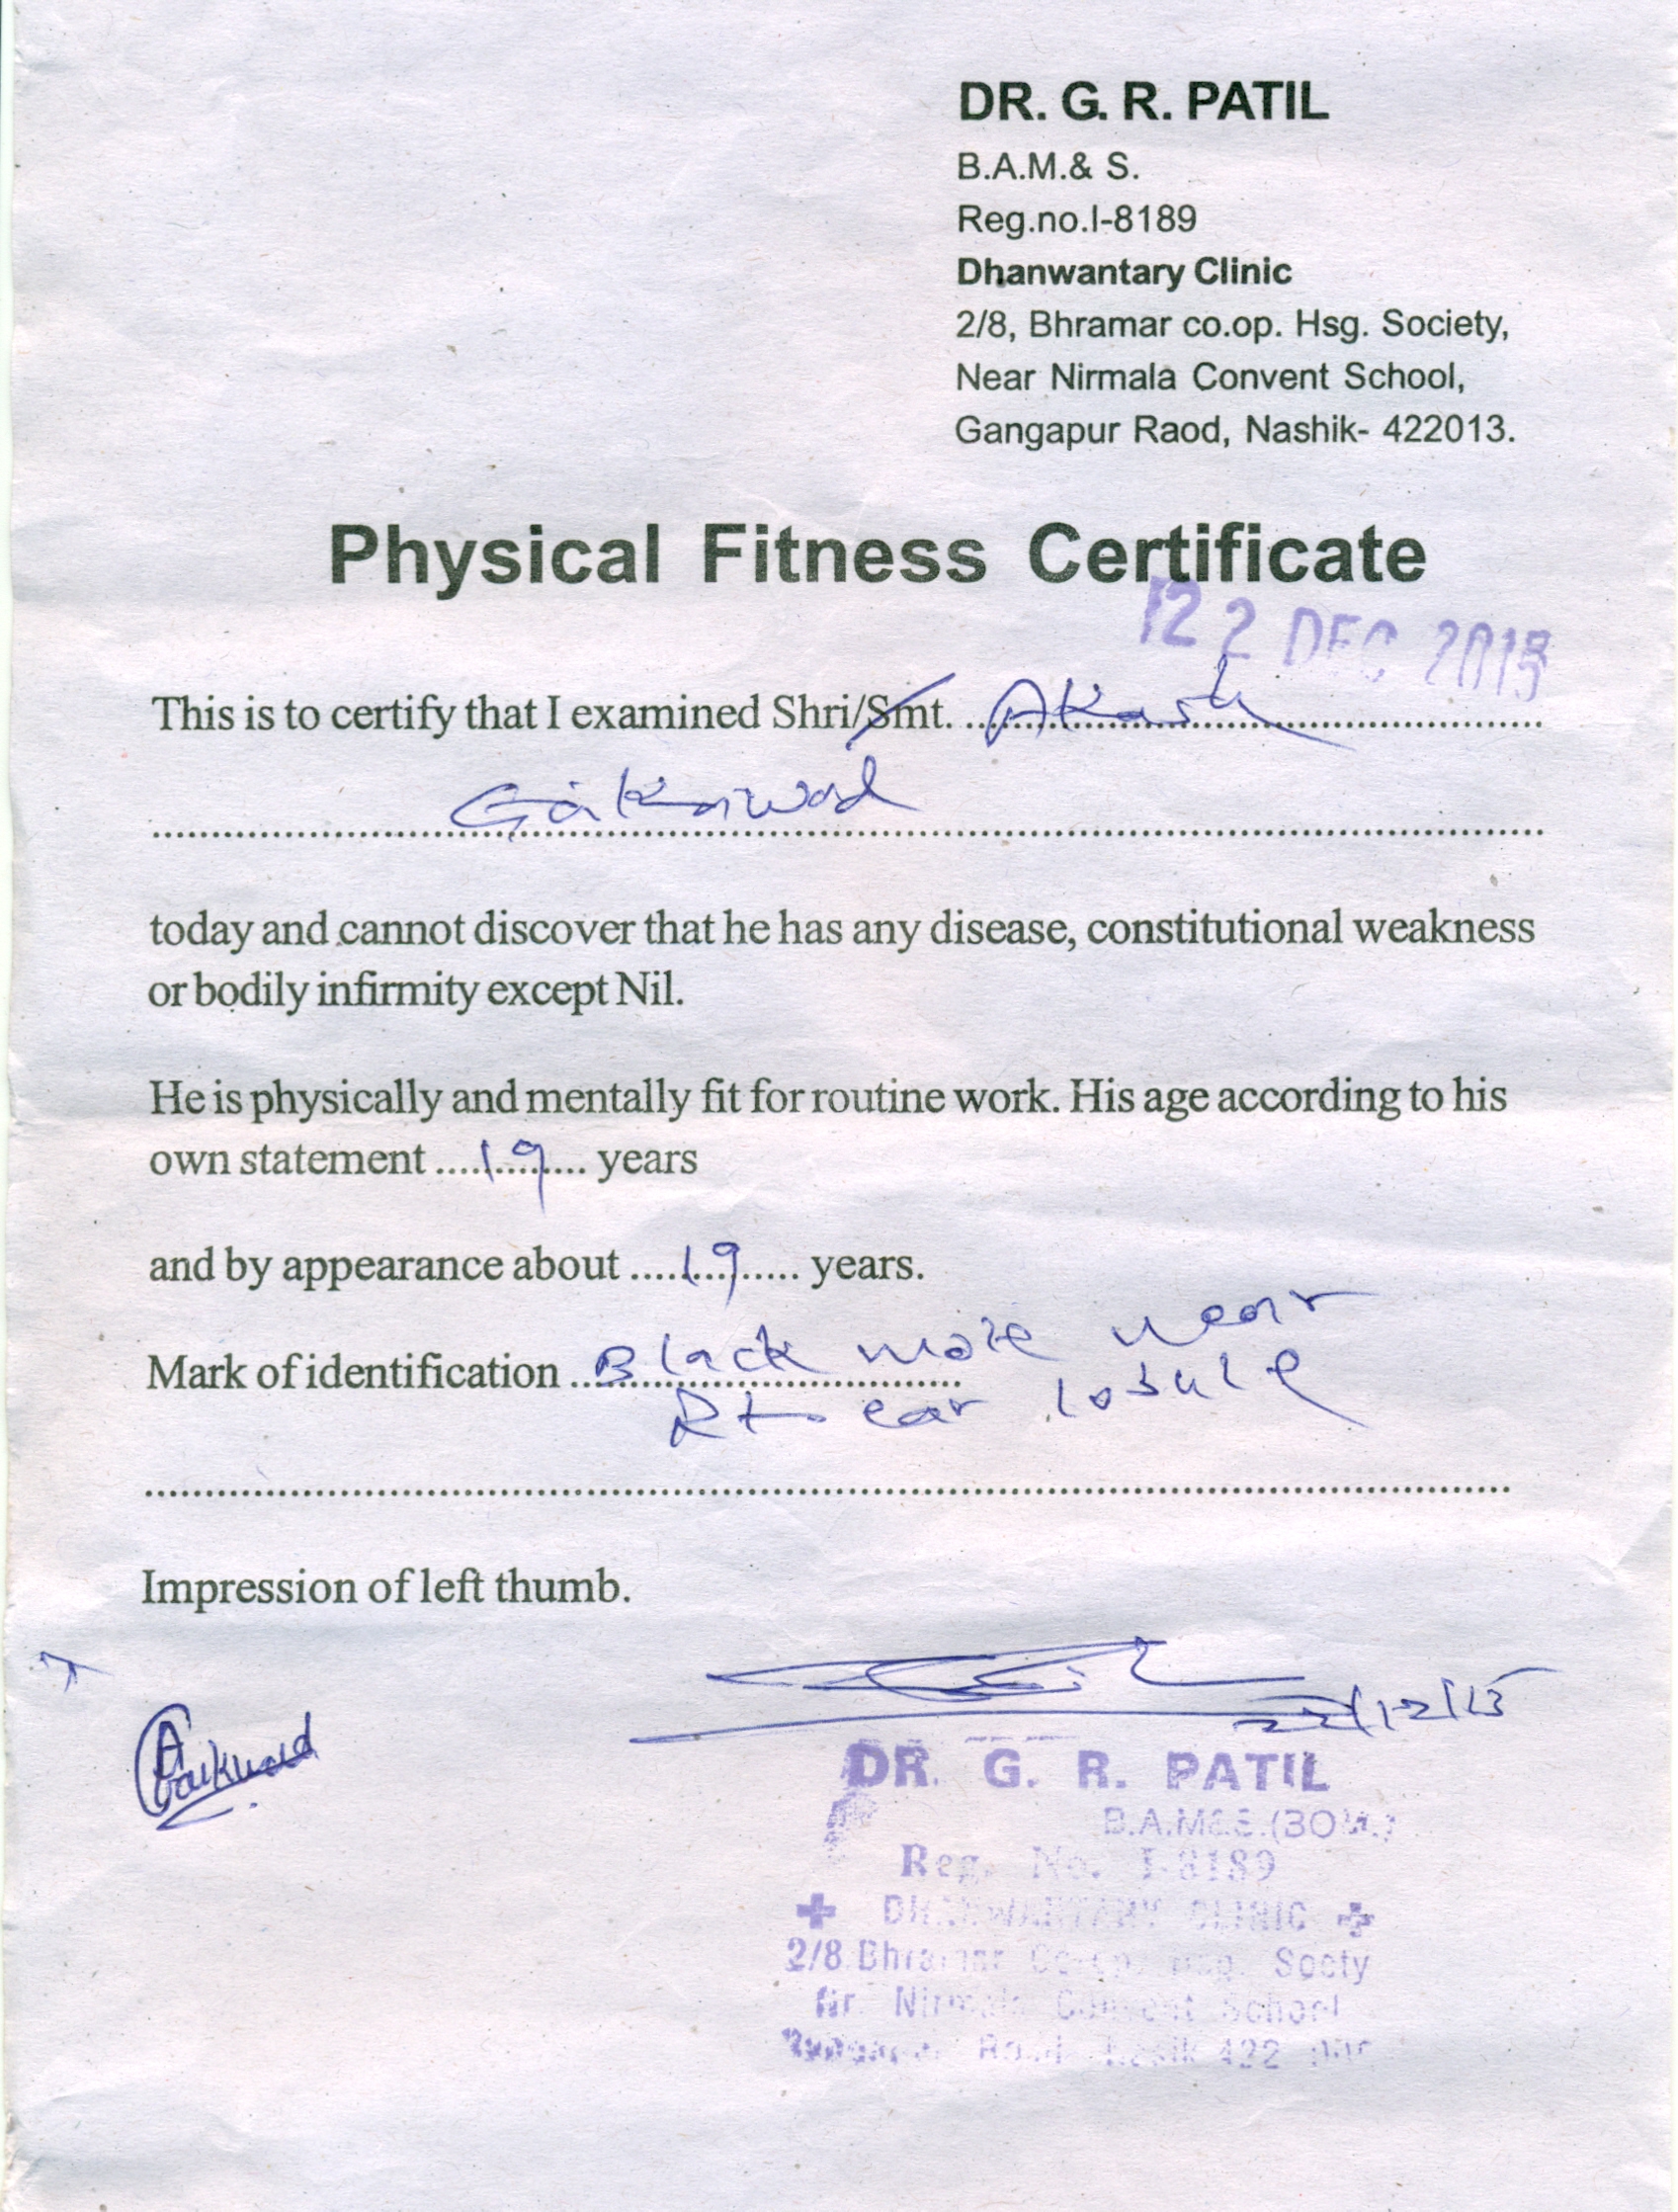 DR. G. R. PATIL
B.A.M.& S.
Reg.no.I-8189
Dhanwantary Clinic
2/8, Bhramar co.op. Hsg. Society,
Near Nirmala Convent School,
Gangapur Raod, Nashik- 422013.
Physical Fitness Certificate
22 DEC 2015
This is to certify that I examined Shri/Smt. Akash
Gaikawad
today and cannot discover that he has any disease, constitutional weakness
or bodily infirmity except Nil.
He is physically and mentally fit for routine work. His age according to his
own statement ....19.... years
and by appearance about ....19.... years.
Mark of identification Black mole near
Rt ear lobule
Impression of left thumb.
22/12/15
Gaikwad
DR. G. R. PATIL
B.A.M&S.(BOM.)
Reg. No. I-8189
DHANWANTARY CLINIC
2/8 Bhramar Co-op. Socty
Nr. Nirmala Convent School
Road Nasik 422